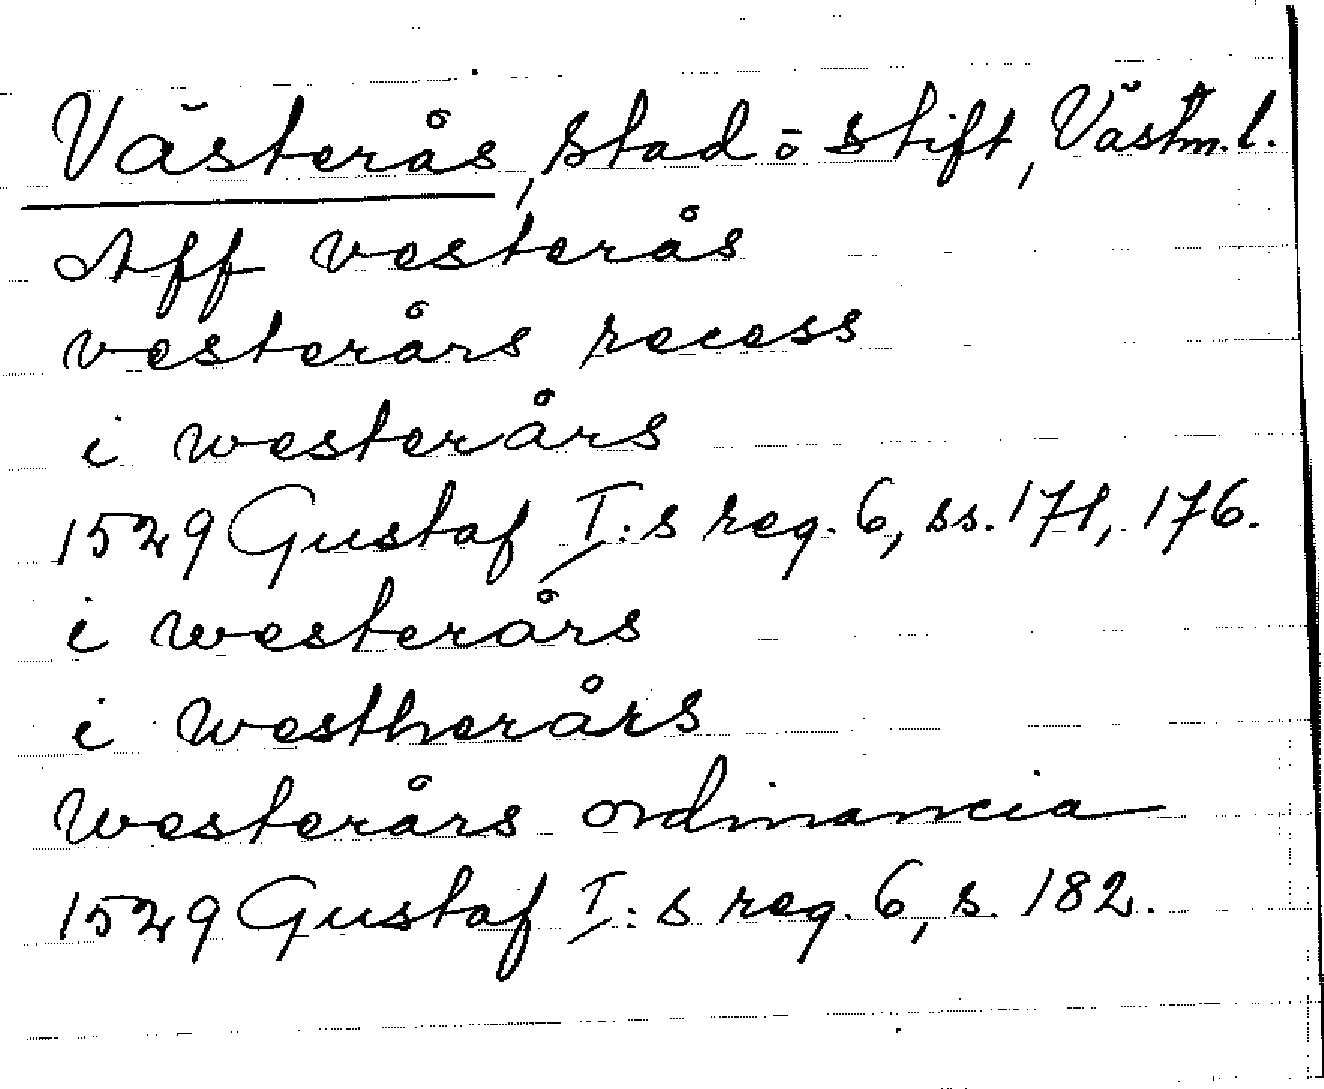 Västerås, stad o stift, Västm. l.
Aff vesterås
vesterårs recess
i westerårs
1529 Gustaf I:s reg. 6, ss. 171, 176.
i westerårs
i westherårs
Westerårs ordinancia
1529 Gustaf I:s reg. 6, s. 182.